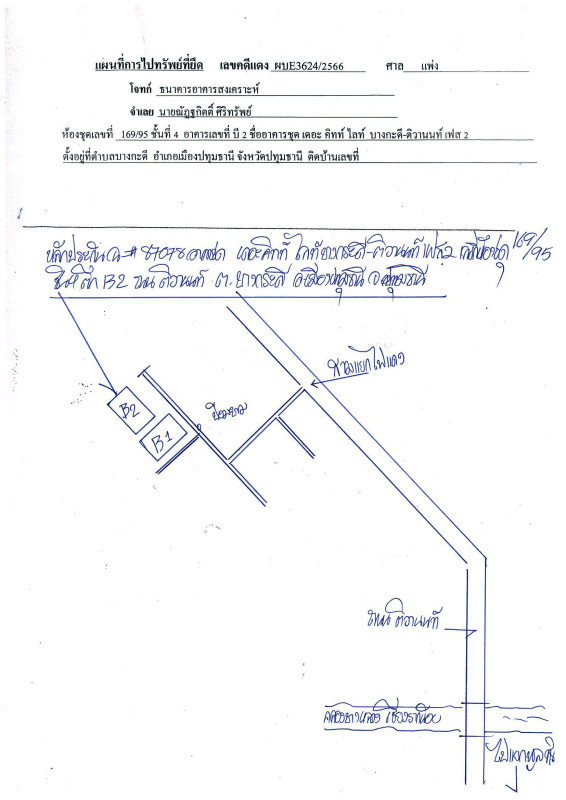 แผนที่การไปทรัพย์ที่ยึด เลขคดีแดง ผบE3624/2566 ศาล แพ่ง
โจทก์ ธนาคารอาคารสงเคราะห์
จำเลย นายณัฏฐกิตติ์ ศิริทรัพย์
ห้องชุดเลขที่ 169/95 ชั้นที่ 4 อาคารเลขที่ บี 2 ชื่ออาคารชุด เดอะ คิทท์ ไลท์ บางกะดี-ติวานนท์ เฟส 2
ตั้งอยู่ที่ตำบลบางกะดี อำเภอเมืองปทุมธานี จังหวัดปทุมธานี ติดบ้านเลขที่
หลักประกัน 87078 อาคารชุด เดอะคิทท์ ไลท์บางกระดี-ติวานนท์ เฟส 2 เลขที่ห้องชุด 169/95
ตึก B2 ถนนติวานนท์ ต.บางกระดี อ.เมืองปทุมธานี จ.ปทุมธานี
สามแยกไฟแดง
B2
ป้อมยาม
B1
ถนน ติวานนท์
คลองบางหลวง เชียงรากน้อย